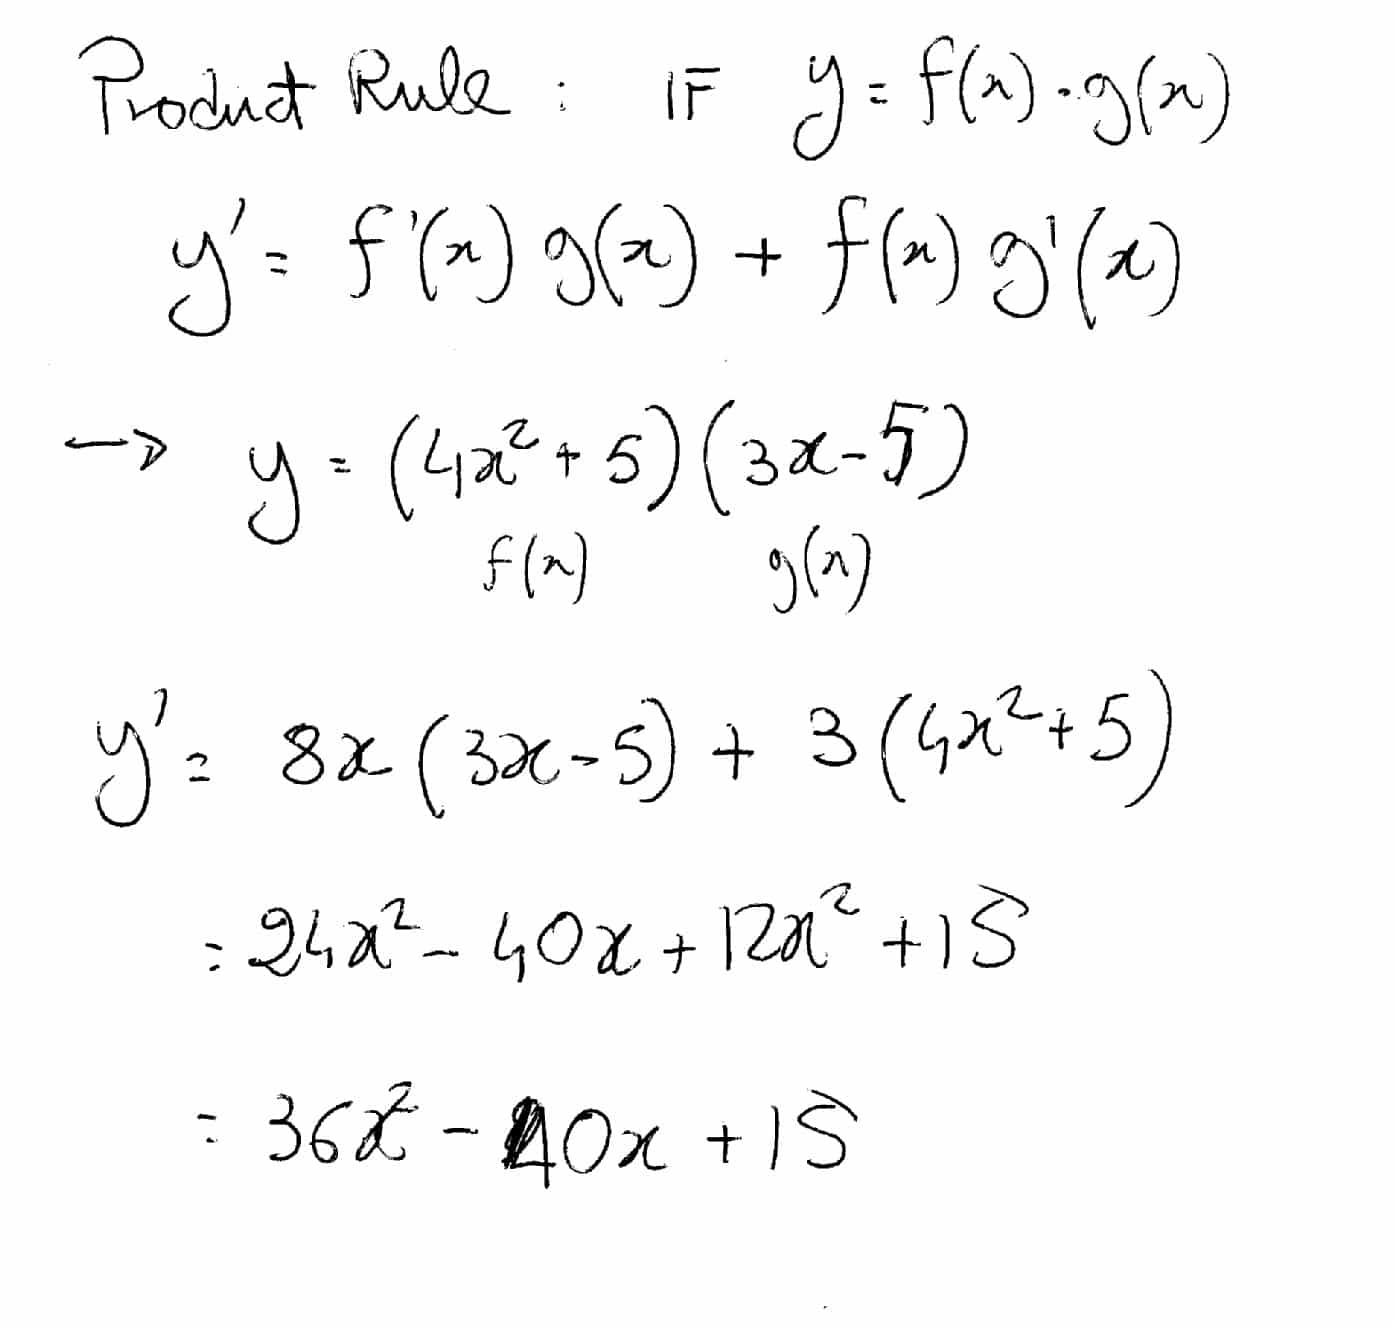 Product Rule : IF y = f(x) · g(x)
y' = f'(x) g(x) + f(x) g'(x)
→ y = (4x² + 5)(3x - 5)
f(x) g(x)
y' = 8x (3x - 5) + 3 (4x² + 5)
= 24x² - 40x + 12x² + 15
= 36x² - 40x + 15